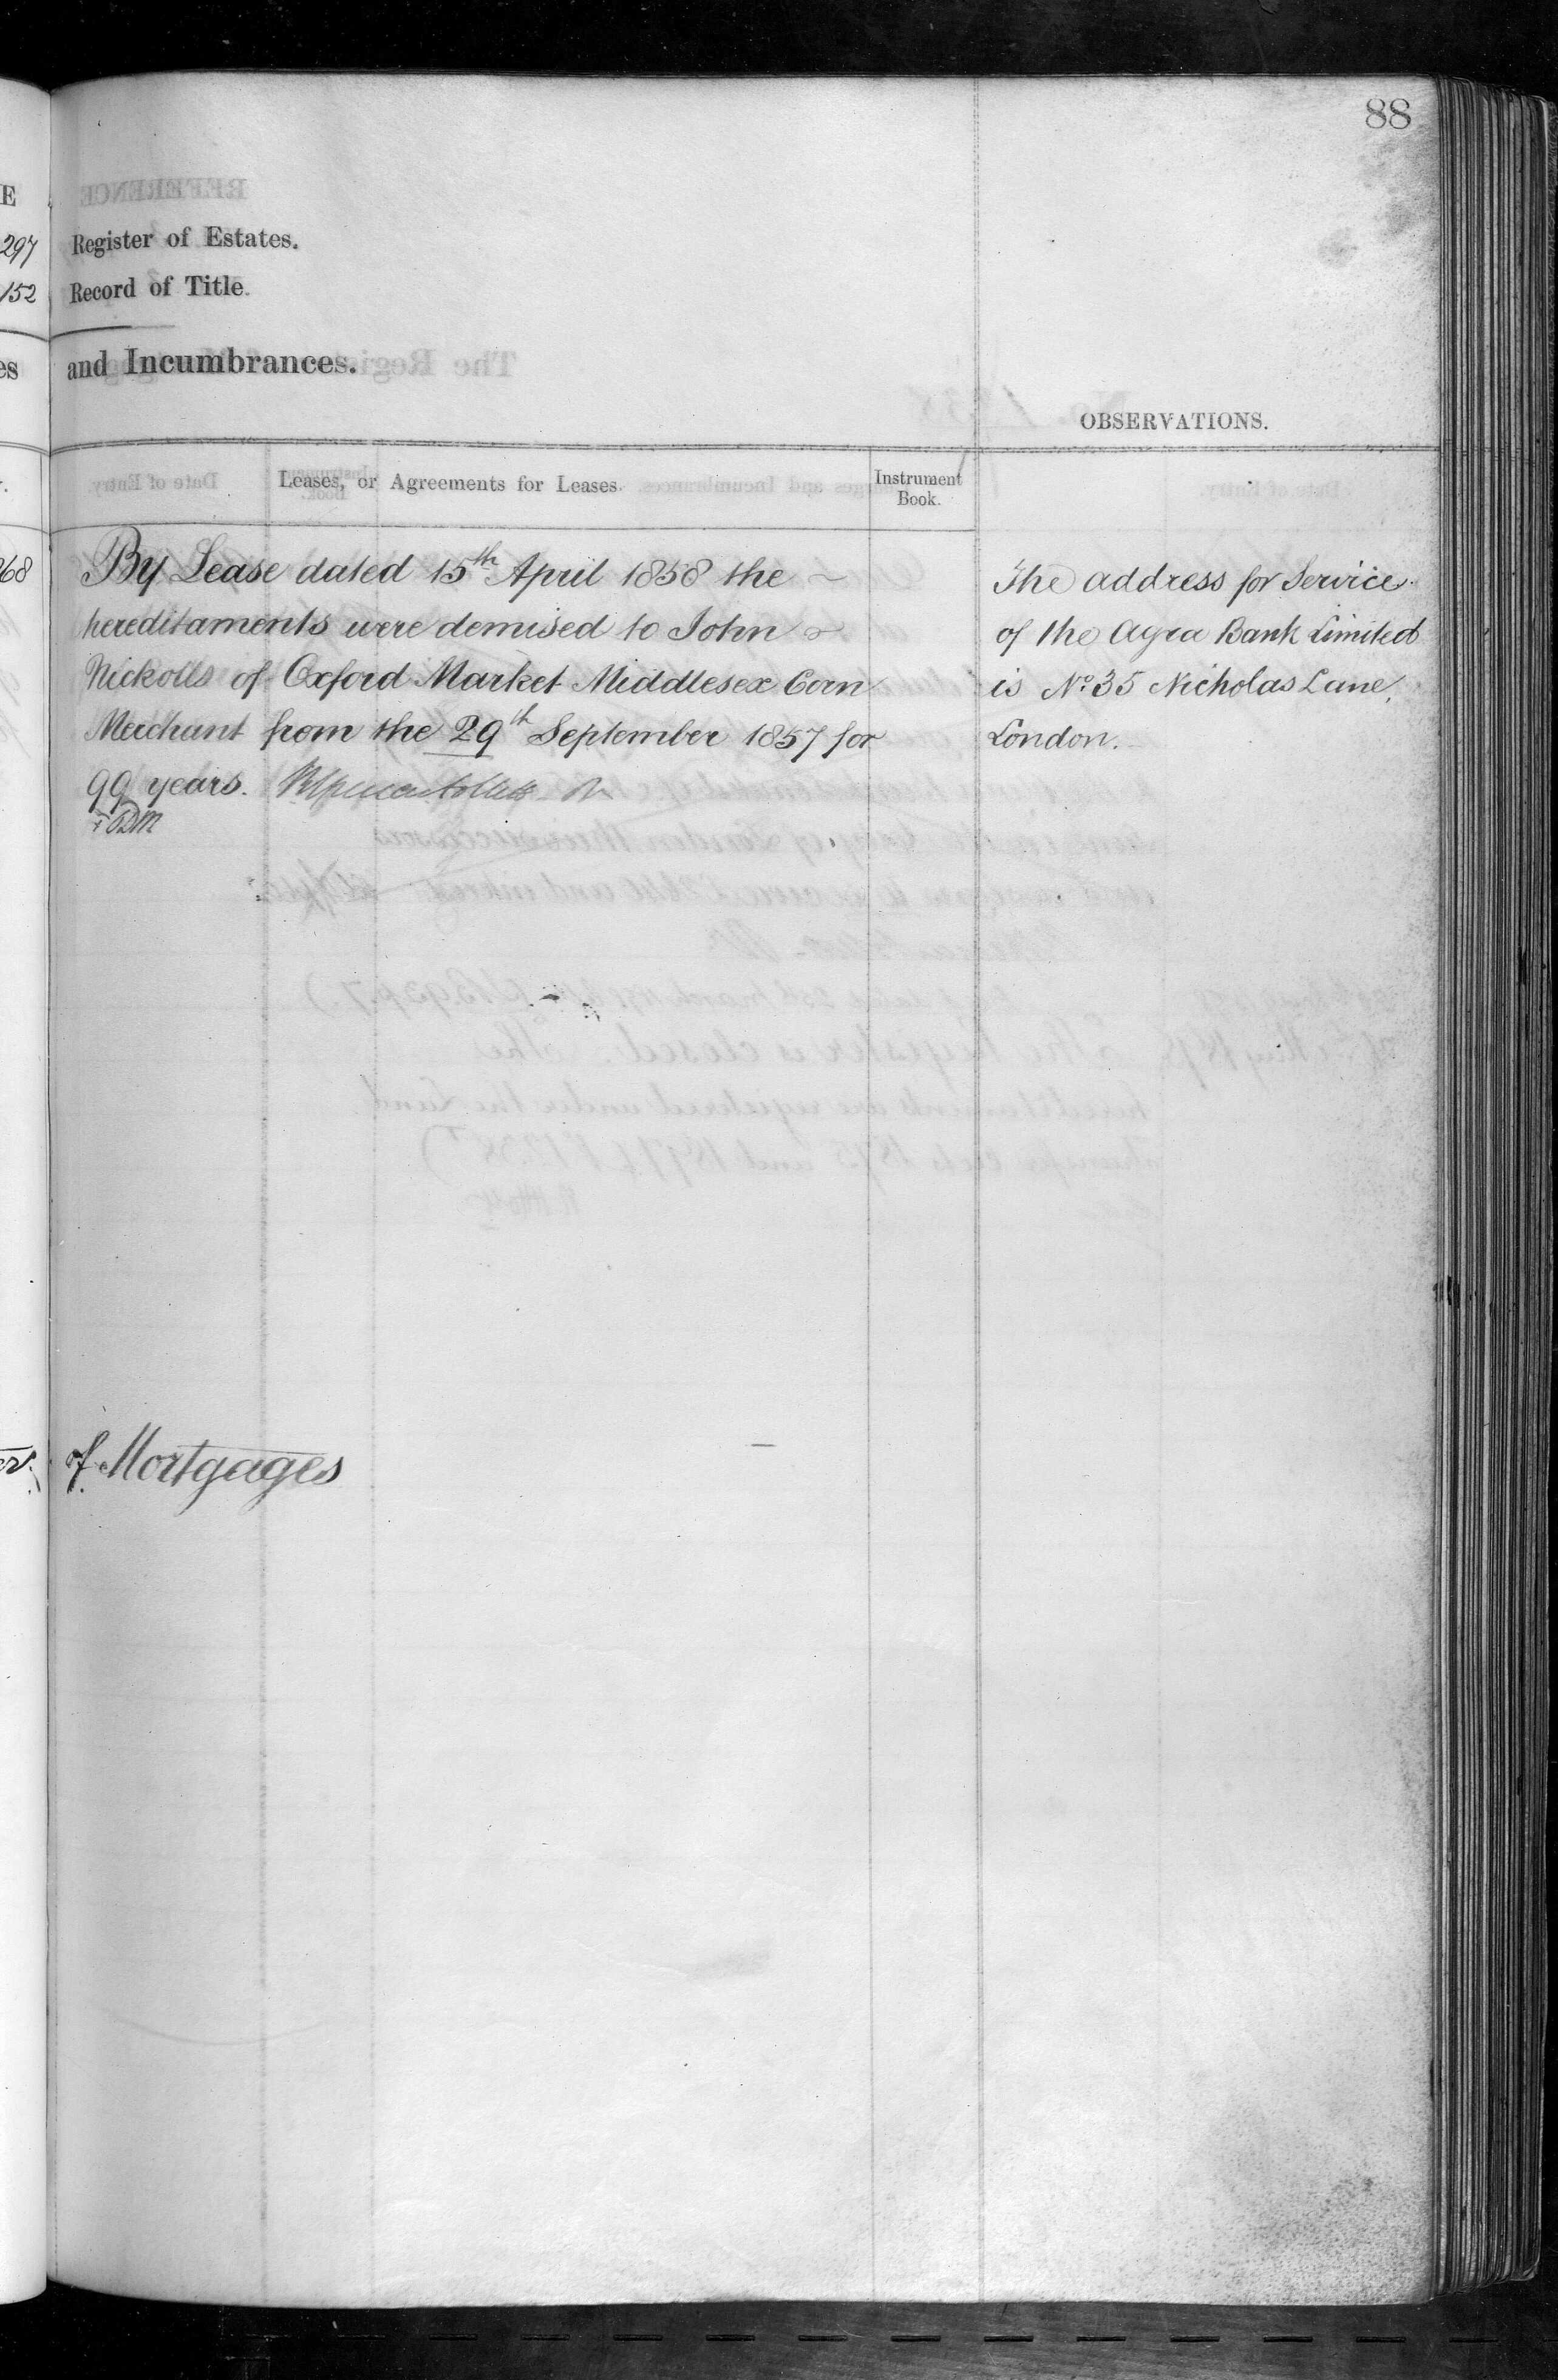 88
E
297 Register of Estates.
152 Record of Title.
es and Incumbrances.
OBSERVATIONS.
Leases, or Agreements for Leases.
Instrument
Book.
68 By Lease dated 15th April 1858 the
hereditaments were demised to John
Nickolls of Oxford Market Middlesex Corn
Merchant from the 29th September 1857 for
99 years.
The address for Service
of the Agra Bank Limited
is No 35 Nicholas Lane,
London.
of Mortgages